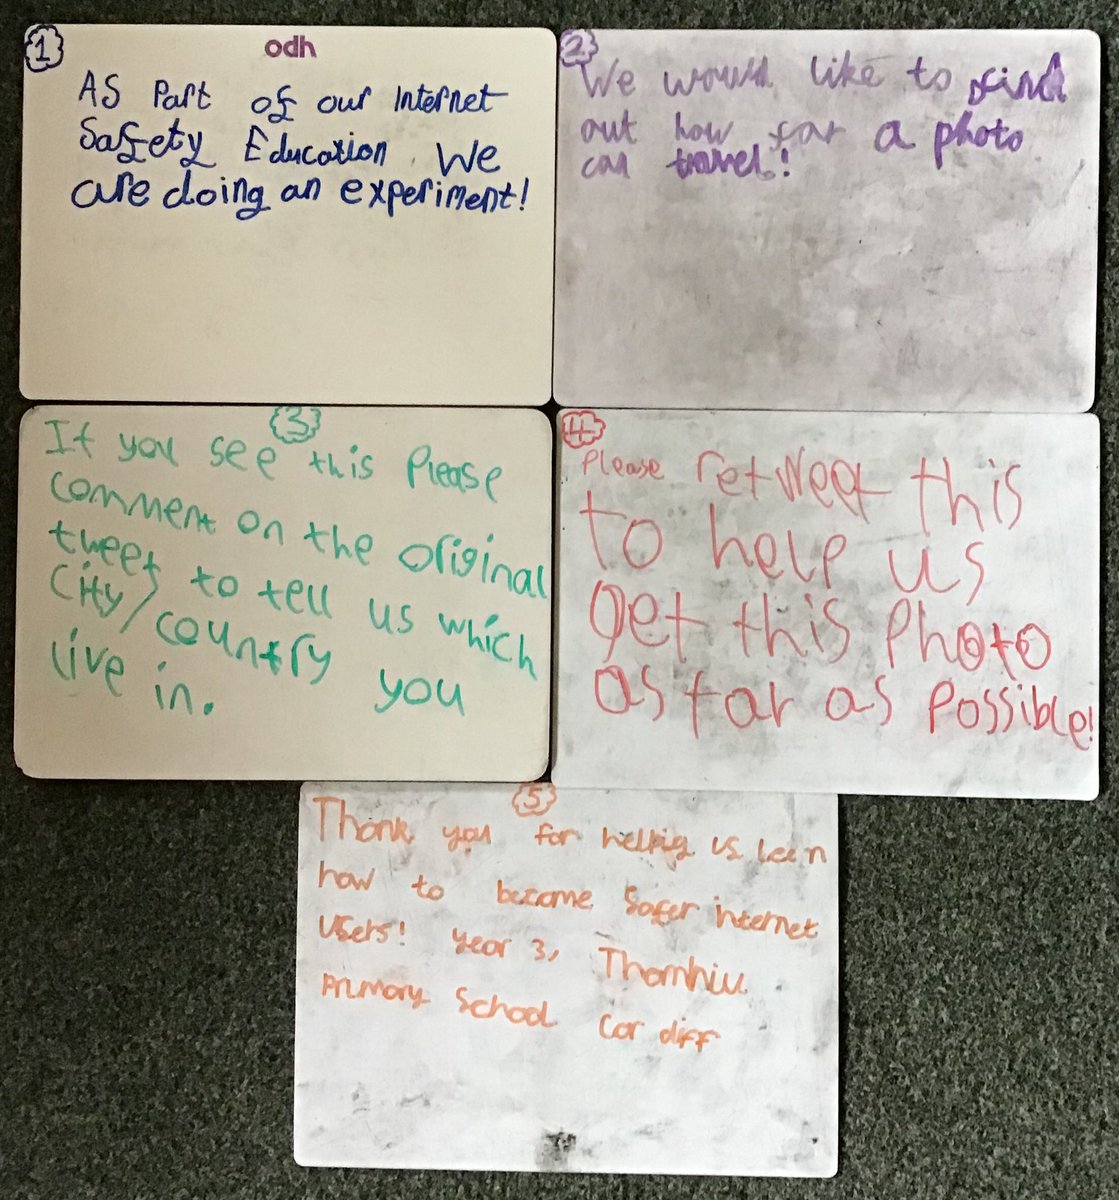 1
odh
AS Part of our Internet
Safety Education We
are doing an experiment!
2
We would like to find
out how far a photo
can travel!
3
If you see this Please
comment on the original
tweet to tell us which
City/country you
live in.
4
Please retweet this
to help us
get this photo
as far as possible!
5
Thank you for helpig us leen
how to become safer internet
users! year 3, Thornhill
Primary School Cardiff